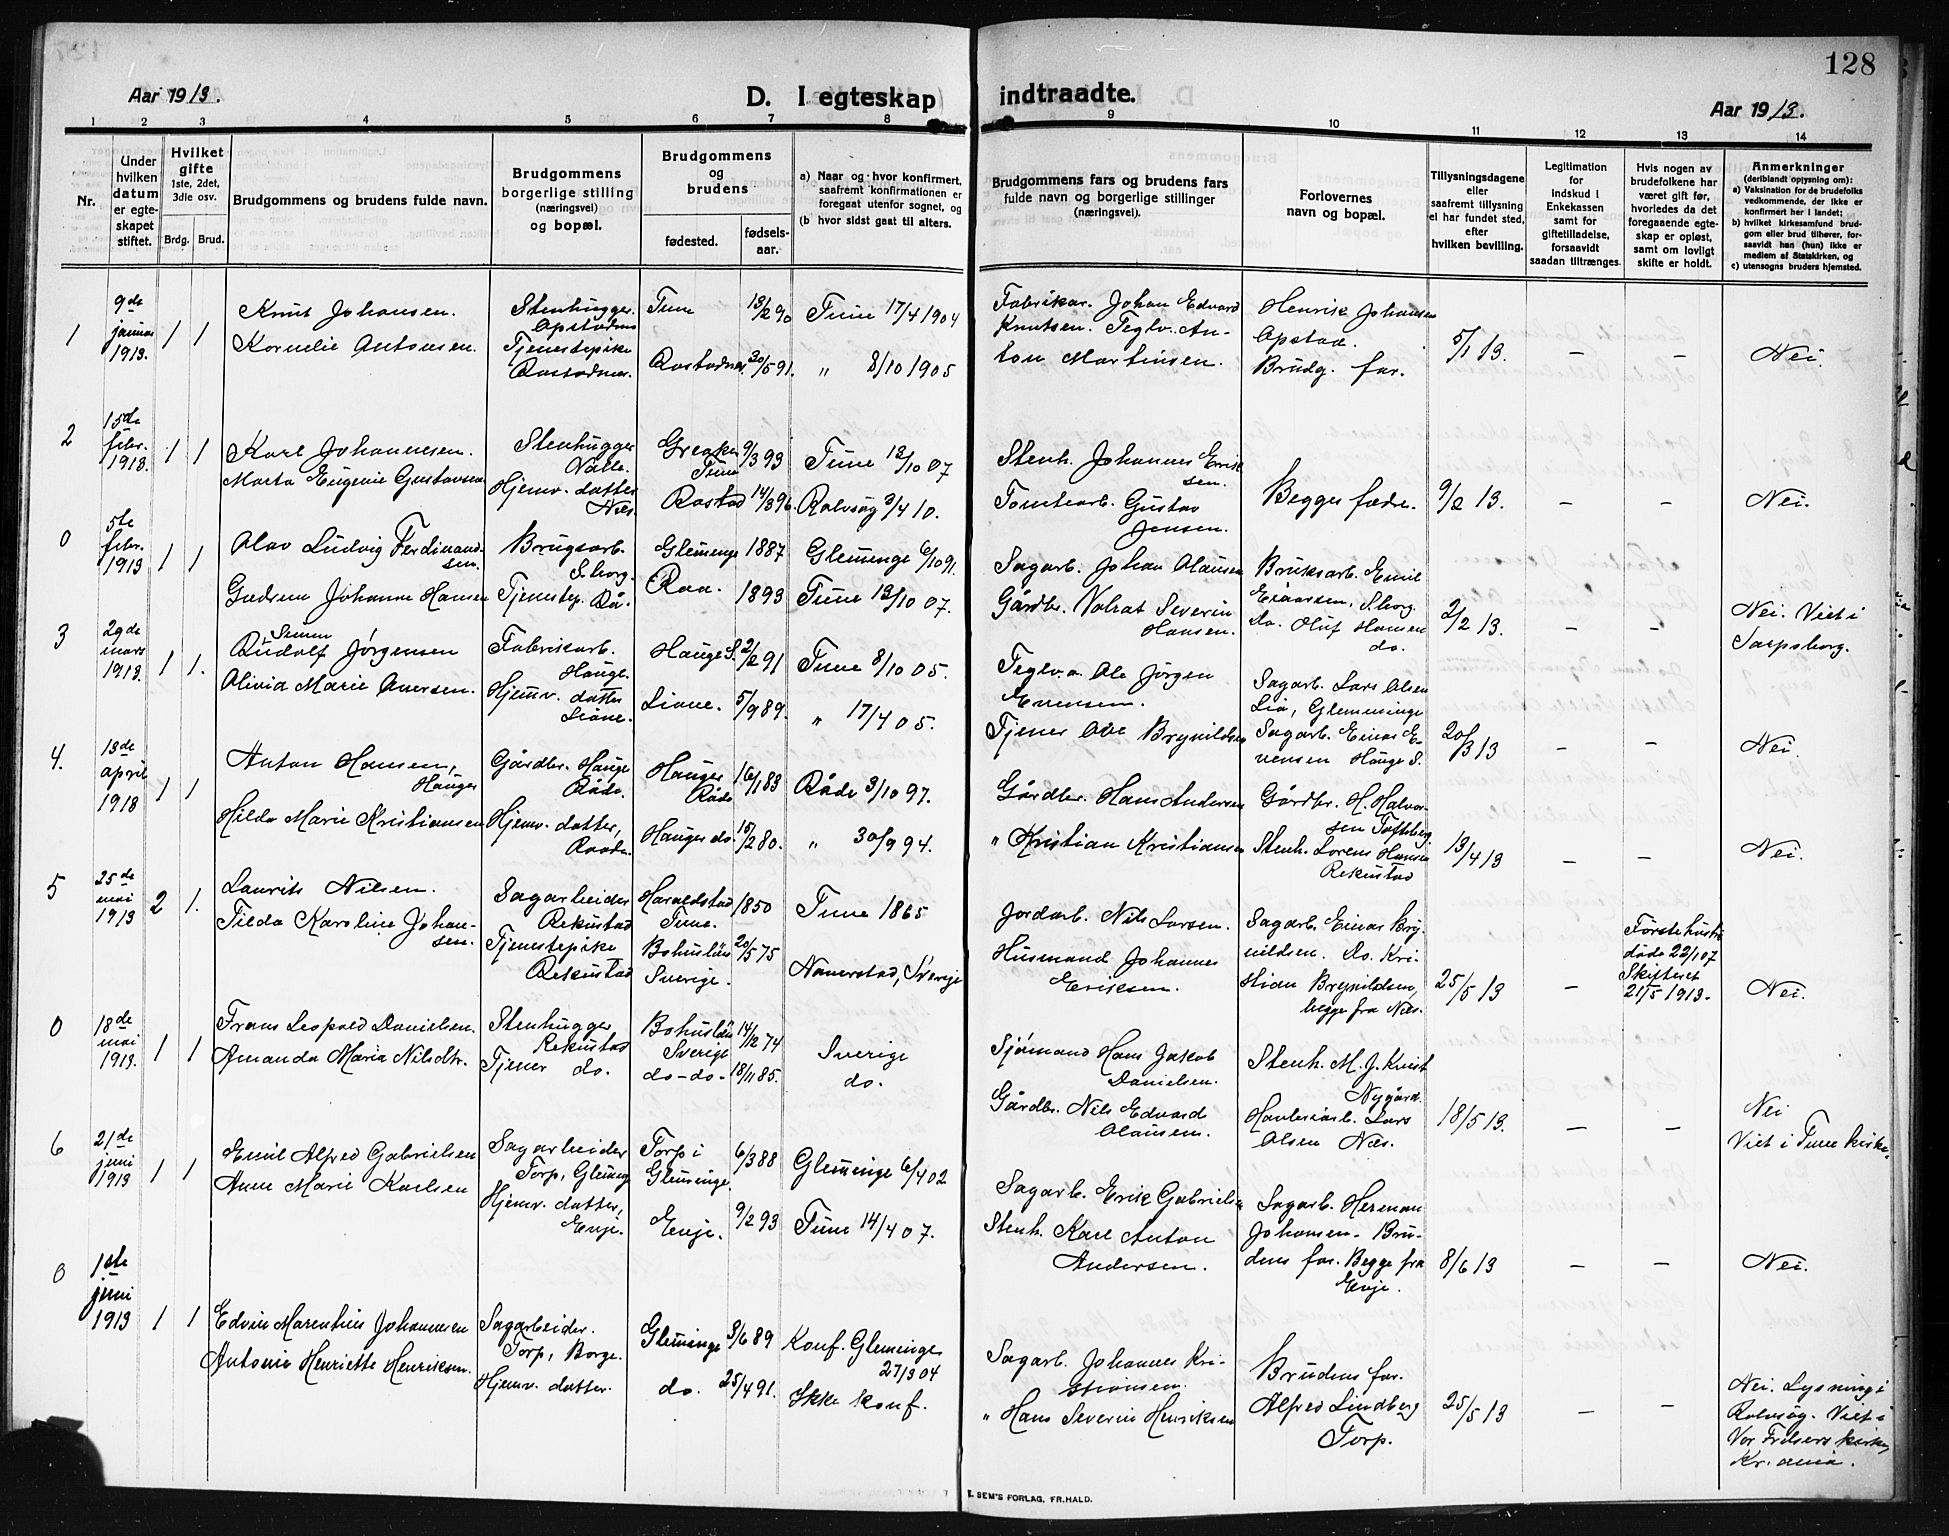 128
Aar 1913.
D. I egteskap indtraadte.
Aar 1913.
1 2 3 4 5 6 7 8 9 10 11 12 13 14
Nr.
Under hvilken datum er egteskapet stiftet.
Hvilket gifte 1ste, 2det, 3die osv.
Brdg. Brud.
Brudgommens og brudens fulde navn.
Brudgommens borgerlige stilling (næringsvei) og bopæl.
Brudgommens og brudens
fødested.
fødselsaar.
a) Naar og hvor konfirmert, saafremt konfirmationen er foregaat utenfor sognet, og
(b hvor sidst gaat til alters.
Brudgommens fars og brudens fars fulde navn og borgerlige stillinger (næringsvei).
Forlovernes navn og bopæl.
Tillysningsdagene eller saafremt tillysning ei har fundet sted, efter hvilken bevilling.
Legitimation for indskud i Enkekassen samt for giftetilladelse, forsaavidt saadan tiltrænges
Hvis nogen av brudefolkene har været gift før, hvorledes da det foregaaende egteskap er opløst, samt om lovligt skifte er holdt.
Anmerkninger (deriblandt oplysning om):
a) Vaksination for de brudefolks vedkommende, der ikke er konfirmert her i landet;
b) hvilket kirkesamfund brudgom eller brud tilhører, forsaavidt han (hun) ikke er medlem af Statskirken, og
c) utensogns bruders hjemsted.
1 9de januar 1913. 1 1
Knut Johansen.
Kornelie Antonsen.
Stenhugger.
Opstadnes
Tjenestepike
Rostadnes.
Tune 13/2 90
Rostadnes 30/5 91.
Tune 17/4 1904
" 8/10 1905
Fabrikar. Johan Edvard
Knutsen. Teglv. An-
ton Martinsen.
Henrik Johansen
Opstad.
Brudg. far.
5/1 13.
– – Nei.
2 15de febr. 1913. 1 1
Karl Johannesen.
Marta Eugenie Gustavsen
Stenhugger
Valle.
Hjemv. datter
Næs.
Greaker Tune 9/3 93
Rostad 14/3 96.
Tune 13/10 07
Rolvsøg 3/4 10.
Stenh. Johannes Erik
sen.
Tomtearb. Gustav
Jensen.
Begges fædre.
9/2 13.
– – Nei.
0 5te febr. 1913 1 1
Olav Ludvig Ferdinand-
sen.
Gudrun Johanne Hansen
Brugsarb.
S.borg.
Tjenestep. Rå.
Glemminge 1887
Raa. 1893
Glemminge 6/10 91.
Tune 13/10 07.
Sagarb. Johan Olausen
Gårdbr. Volrat Severin
Hansen.
Bruksarb. Emil
Einarsen, S.borg.
Do. Oluf Hansen
do.
2/2 13.
– –
Nei. Viet i
Sarpsborg.
3 29de mars 1913. 1 1.
Simen
Rudolf Jørgensen
Olivia Marie Ovesen.
Fabrikarb.
Hauge.
Hjemv. datter
Liane.
Hauge S. 2/2 91
Liane. 5/9 89.
Tune 8/10 05.
" 17/4 05.
Teglv.a. Ole Jørgen
Evensen.
Tjener Ove Brynildsen
Sagarb. Lars Olsen
Lia, Glemminge
Sagarb. Einar E-
vensen Hauge S.
20/3 13
– – Nei.
4. 13de april 1913 1 1
Anton Hansen,
Hauger
Hilda Marie Kristiansen
Gårdbr. Hauge
Råde.
Hjemv. datter,
Raade.
Hauger Råde 16/1 83
Hauger do. 15/2 80.
Råde 3/10 97.
" 30/9 94.
Gårdbr. Hans Andersen
" Kristian Kristiansen
Gårdbr. H. Halvor-
sen Tofteberg
Stenh. Lorens Hansen
Rekustad
13/4 13
– – Nei.
5 25de mai 1913 2 1.
Laurits Nilsen.
Tilda Karoline Johan-
sen.
Sagarbeider
Rekustad
Tjenestepike
Rekustad
Haraldstad Tune. 1850
Bohuslän Sverige. 20/5 75
Tune 1865
Naverstad, Sverige
Jordarb. Nils Larsen.
Husmand Johannes
Eriksen.
Sagarb. Einar Bry-
nildsen. Do. Kri-
stian Brynildsen,
begge fra Næs.
25/5 13
–
Første hustru
døde 22/1 07
Skifteret
21/5 1913.
Nei.
0 18de mai 1913. 1 1
Frans Leopold Danielsen.
Amanda Maria Nilsdtr.
Stenhugger
Rekustad
Tjener do.
Bohuslän Sverige 14/12 74
do-do- 18/11 85.
Sverige
do.
Sjømand Hans Jakob
Danielsen.
Gårdbr. Nils Edvard
Olausen.
Stenh. M. J. Kvist
Nygård.
Lars
Olsen Næs.
18/5 13.
– –
Nei
Viet i Tune kirke.
6 21de juni 1913 1 1
Emil Alfred Gabrielsen
Anne Marie Karlsen
Sagarbeider
Torp, Glemng
Hjemv. datter,
Enje.
Torp i Glemminge. 6/3 88
Enje. 9/2 93
Glemminge 6/4 02
Tune 14/4 07.
Sagarb. Erik Gabrielsen
Stenh. Karl Anton
Andersen.
Sagarb. Herman
Johansen. Bru-
dens far. Begge fra
Enje.
8/6 13
– – Nei.
0 1ste juni 1913 1 1
Edvin Marentius Johannesen
Antonie Henriette Henriksen.
Sagarbeider.
Torp, Borge.
Hjemv. datter.
Glemminge 3/6 89
do. 25/4 91.
Konf. Glemminge
27/3 04
Ikke konf.
Sagarb. Johannes Kri-
stiansen.
" Hans Severin Henriksen
Brudens far.
Alfred Lindberg
Torp.
25/5 13
– –
Nei. Lysning i
Rolvsøg. Viet i
Vor Frelsers kirke,
Kr.ania.
E. SEM'S FORLAG, FR.HALD.